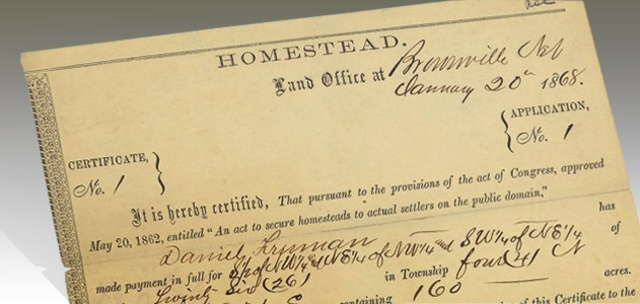 HOMESTEAD.
Land Office at Brownville Neb
January 20th 1868.
CERTIFICATE, } APPLICATION,
No. 1 { No. 1
It is hereby certified, That pursuant to the provisions of the act of Congress, approved
May 20, 1862, entitled "An act to secure homesteads to actual settlers on the public domain,"
Daniel Freeman has
made payment in full for of NW¼ & NE¼ of NW¼ and SW¼ of NE¼ of
Twenty Six (26) in Township four (4) N
containing 160 acres.
this Certificate to the